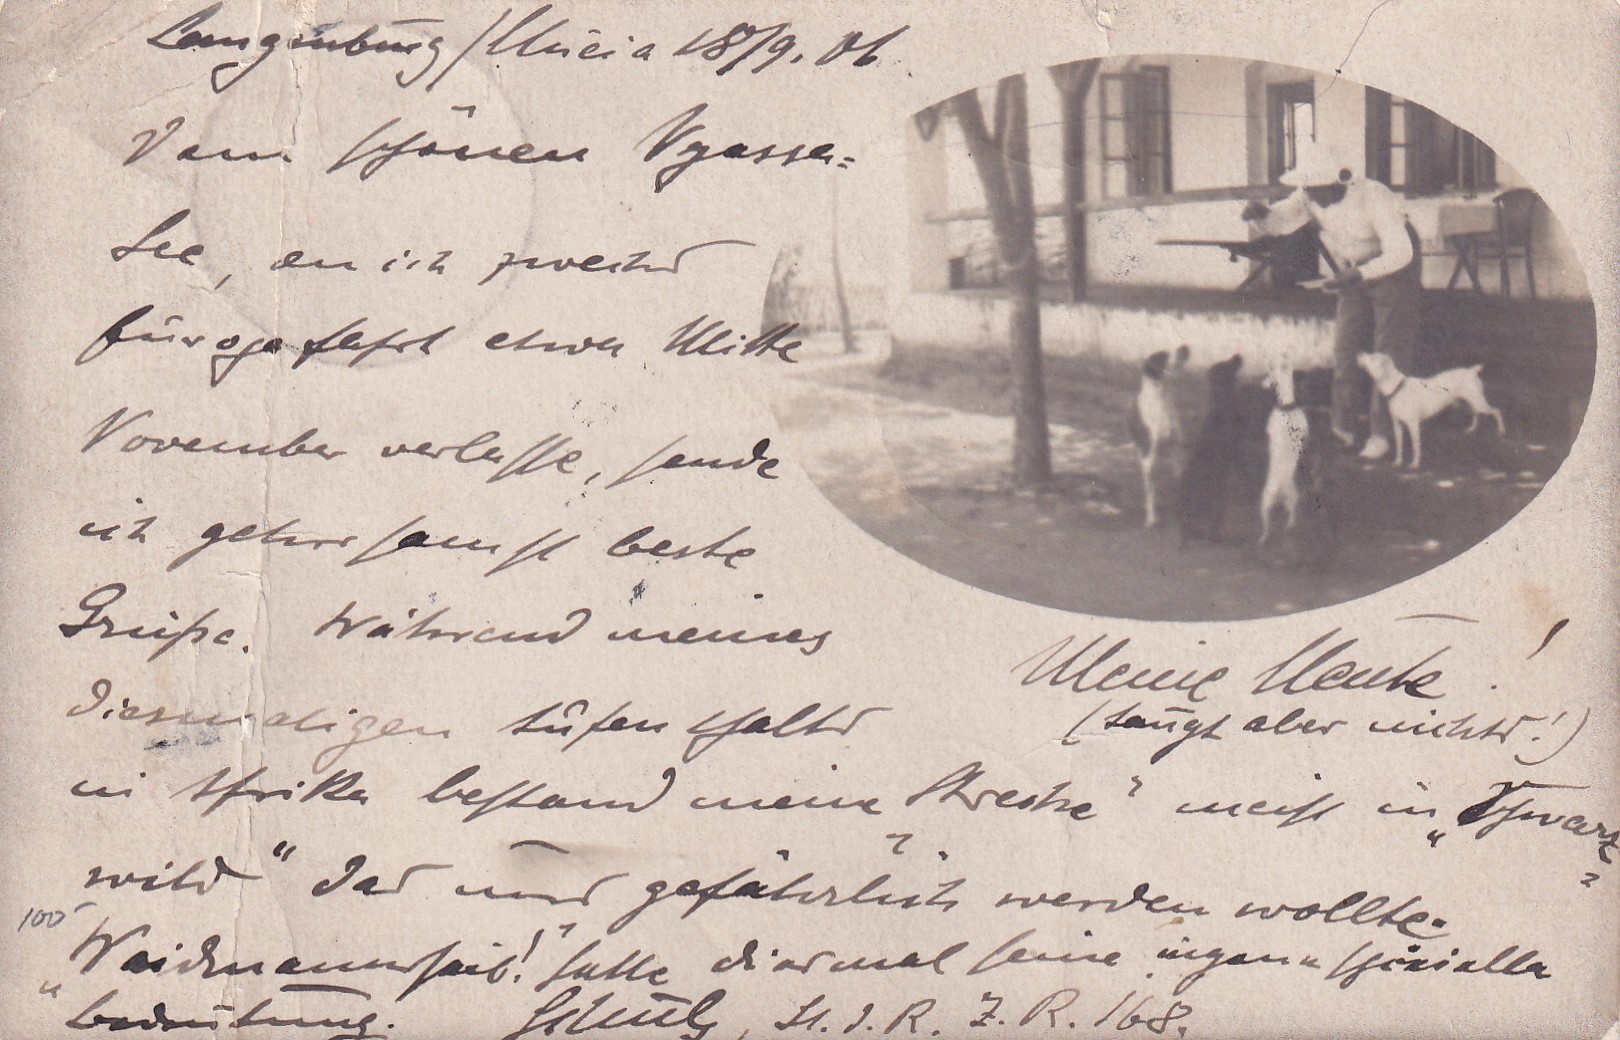 Langenburg / Usicia 18/9. 06
Vom schönen Nyassa=
See, den ich
etwa Mitte
November verlasse, sende
ich gehorsamst beste
Grüße. Während meines
diesmaligen
in Afrika bestand meine "Strecke" meist in "Schwarz=
wild" das uns gefährlich werden wollte.
"Waidmannsheil!" hatte diesmal seine eigene spezielle
Bedeutung. Schultz, Lt. d. R. F. R. 168.
Meine Meute!
(taugt aber nichts!)
100